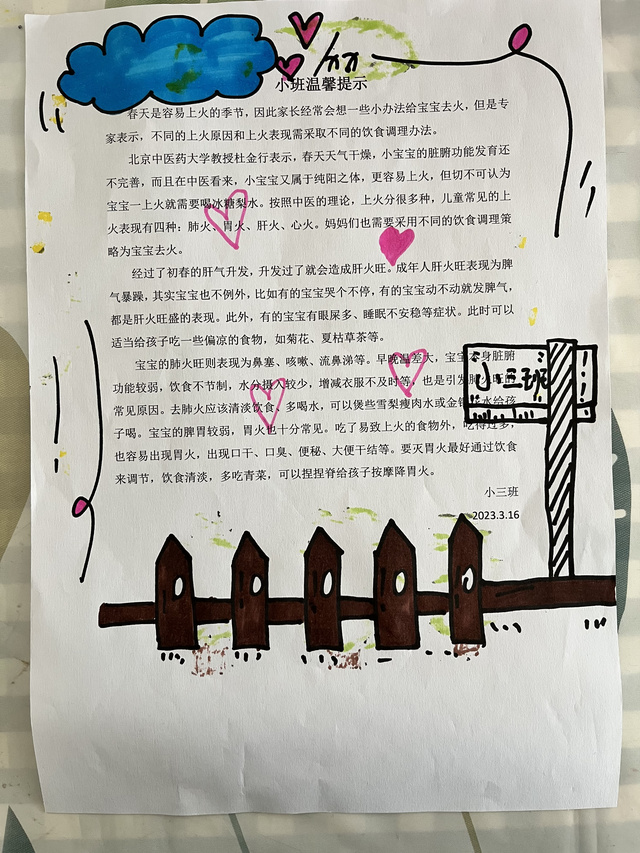 小班温馨提示
春天是容易上火的季节，因此家长经常会想一些小办法给宝宝去火，但是专
家表示，不同的上火原因和上火表现需采取不同的饮食调理办法。
北京中医药大学教授杜金行表示，春天天气干燥，小宝宝的脏腑功能发育还
不完善，而且在中医看来，小宝宝又属于纯阳之体，更容易上火，但切不可认为
宝宝一上火就需要喝冰糖梨水。按照中医的理论，上火分很多种，儿童常见的上
火表现有四种：肺火、胃火、肝火、心火。妈妈们也需要采用不同的饮食调理策
略为宝宝去火。
经过了初春的肝气升发，升发过了就会造成肝火旺。成年人肝火旺表现为脾
气暴躁，其实宝宝也不例外，比如有的宝宝哭个不停，有的宝宝动不动就发脾气，
都是肝火旺盛的表现。此外，有的宝宝有眼屎多、睡眠不安稳等症状。此时可以
适当给孩子吃一些偏凉的食物，如菊花、夏枯草茶等。
宝宝的肺火旺则表现为鼻塞、咳嗽、流鼻涕等。早晚温差大，宝宝本身脏腑
功能较弱，饮食不节制，水分摄入较少，增减衣服不及时等，也是引发肺火旺的
常见原因。去肺火应该清淡饮食、多喝水，可以煲些雪梨瘦肉水或金银花水给孩
子喝。宝宝的脾胃较弱，胃火也十分常见。吃了易致上火的食物外，吃得过多，
也容易出现胃火，出现口干、口臭、便秘、大便干结等。要灭胃火最好通过饮食
来调节，饮食清淡，多吃青菜，可以捏捏脊给孩子按摩降胃火。
小三班
2023.3.16
小三班